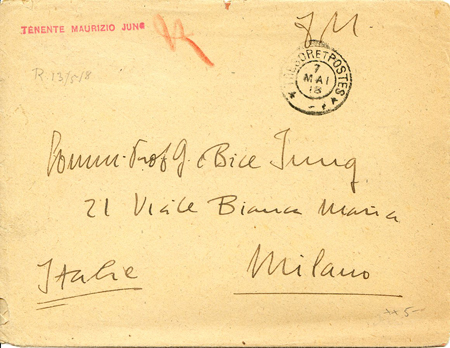 TENENTE MAURIZIO JUNG
R. 13/5/8
TRESOR ET POSTES
7
MAI
18
Comm. Prof G. e Bice Jung
21 Viale Bianca Maria
Italie
Milano